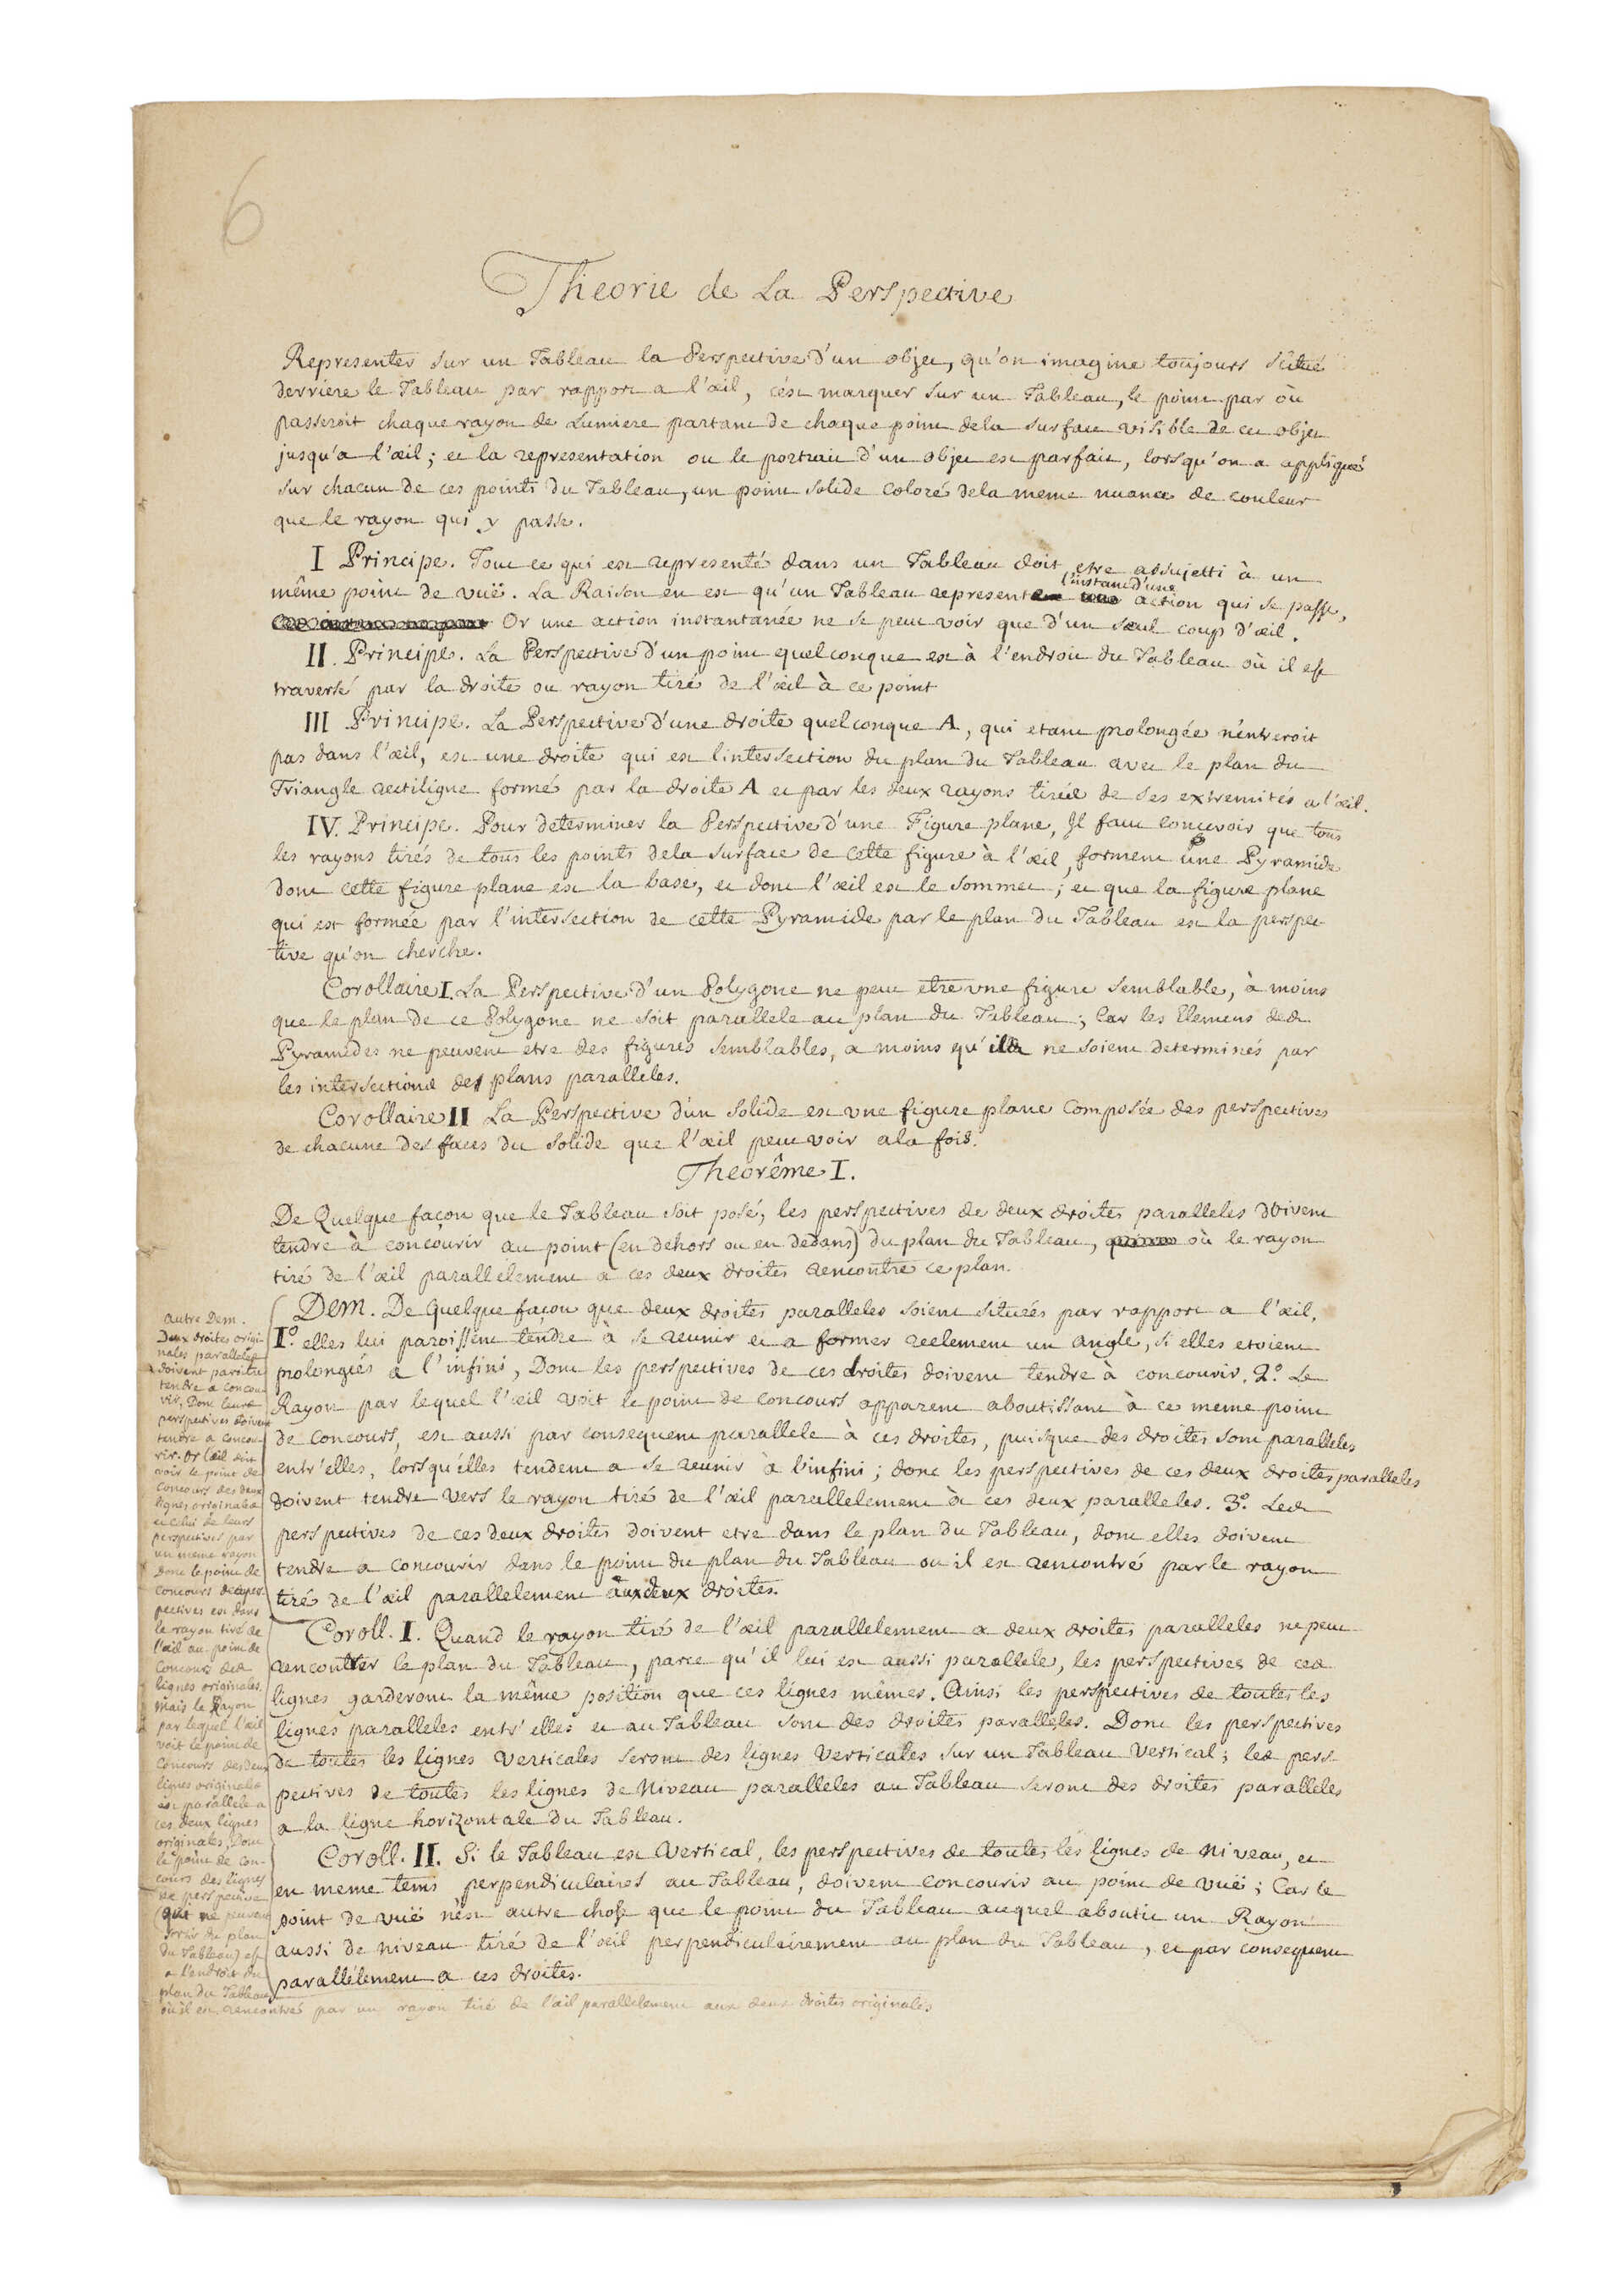 6
Theorie de La Perspective
Representer sur un Tableau la Perspective d'un objet, qu'on imagine toujours situé
derriere le Tableau par rapport a l'œil, c'est marquer sur un Tableau, le point par où
passeroit chaque rayon de Lumiere partant de chaque point dela surface visible de cet objet
jusqu'a l'œil; et la representation ou le portrait d'un objet est parfait, lorsqu'on a appliqué
sur chacun de ces points du Tableau, un point solide coloré dela meme nuance de couleur
que le rayon qui y passe.
I Principe. Tout ce qui est representé dans un Tableau doit etre assujetti à un
même point de vuë. La Raison en est qu'un Tableau represente l'instant d'une action qui se passe,
Or une action instantanée ne se peut voir que d'un seul coup d'œil.
II. Principe. La Perspective d'un point quelconque est à l'endroit du Tableau où il est
traversé par la droite ou rayon tiré de l'œil à ce point
III Principe. La Perspective d'une droite quelconque A, qui etant prolongée n'entreroit
pas dans l'œil, est une droite qui est l'intersection du plan du Tableau avec le plan du
Triangle rectiligne formé par la droite A et par les deux rayons tirés de ses extremités a l'œil.
IV. Principe. Pour determiner la Perspective d'une Figure plane, Il faut concevoir que tous
les rayons tirés de tous les points dela surface de cette figure à l'œil, forment une Pyramide
dont cette figure plane est la base, et dont l'œil est le sommet; et que la figure plane
qui est formée par l'intersection de cette Pyramide par le plan du Tableau est la perspec-
tive qu'on cherche.
Corollaire I. La Perspective d'un Polygone ne peut etre une figure semblable, à moins
que le plan de ce Polygone ne soit parallele au plan du Tableau; Car les Elemens des
Pyramides ne peuvent etre des figures semblables, a moins qu'ils ne soient determinés par
les intersections des plans paralleles.
Corollaire II La Perspective d'un solide est une figure plane Composée des perspectives
de chacune des faces du solide que l'œil peut voir ala fois.
Theorême I.
De Quelque façon que le Tableau soit posé, les perspectives de deux droites paralleles doivent
tendre à concourir au point (en dehors ou en dedans) du plan du Tableau, où le rayon
tiré de l'œil parallelement a ces deux droites rencontre ce plan.
Dem. De quelque façon que deux droites paralleles soient situées par rapport a l'œil,
I.º elles lui paroissent tendre à se reunir et a former reelement un angle, si elles etoient
prolongées a l'infini, Donc les perspectives de ces droites doivent tendre à concourir. 2.º Le
Rayon par lequel l'œil voit le point de concours apparent aboutissant à ce meme point
de concours, est aussi par consequent parallele à ces droites, puisque des droites sont paralleles
entr'elles, lorsqu'elles tendent a se reunir à l'infini; donc les perspectives de ces deux droites paralleles
doivent tendre vers le rayon tiré de l'œil parallelement à ces deux paralleles. 3.º Les
perspectives de ces deux droites doivent etre dans le plan du Tableau, donc elles doivent
tendre a concourir dans le point du plan du Tableau ou il est rencontré par le rayon
tiré de l'œil parallelement aux deux droites.
Coroll. I. Quand le rayon tiré de l'œil parallelement a deux droites paralleles ne peut
rencontrer le plan du Tableau, parce qu'il lui est aussi parallele, les perspectives de ces
lignes garderont la même position que ces lignes mêmes. Ainsi les perspectives de toutes les
lignes paralleles entr'elles et au Tableau sont des droites paralleles. Donc les perspectives
de toutes les lignes verticales seront des lignes verticales sur un Tableau Vertical; les pers-
pectives de toutes les lignes de Niveau paralleles au Tableau seront des droites paralleles
a la ligne horizontale du Tableau.
Coroll. II. Si le Tableau est Vertical, les perspectives de toutes les lignes de niveau, et
en meme tems perpendiculaires au Tableau, doivent concourir au point de vuë; Car le
point de vuë n'est autre chose que le point du Tableau auquel aboutit un Rayon
aussi de niveau tiré de l'œil perpendiculairement au plan du Tableau, et par consequent
parallelement a ces droites.
autre Dem.
Deux droites origi-
nales paralleles
doivent paroitre
tendre a concou-
rir. Donc leurs
perspectives doivent
tendre a concou-
rir. Or l'œil doit
voir le point de
concours des deux
lignes originales
et celui de leurs
perspectives par
un meme rayon
donc le point de
concours des pers-
pectives est dans
le rayon tiré de
l'œil au point de
concours des
lignes originales.
mais le Rayon
par lequel l'œil
voit le point de
concours des deux
lignes originales
est parallele a
ces deux lignes
originales, Donc
le point de con-
cours des lignes
de perspective
(qui ne peuvent
sortir du plan
du Tableau) est
a l'endroit du
plan du Tableau
où il est rencontré par un rayon tiré de l'œil parallelement aux deux droites originales